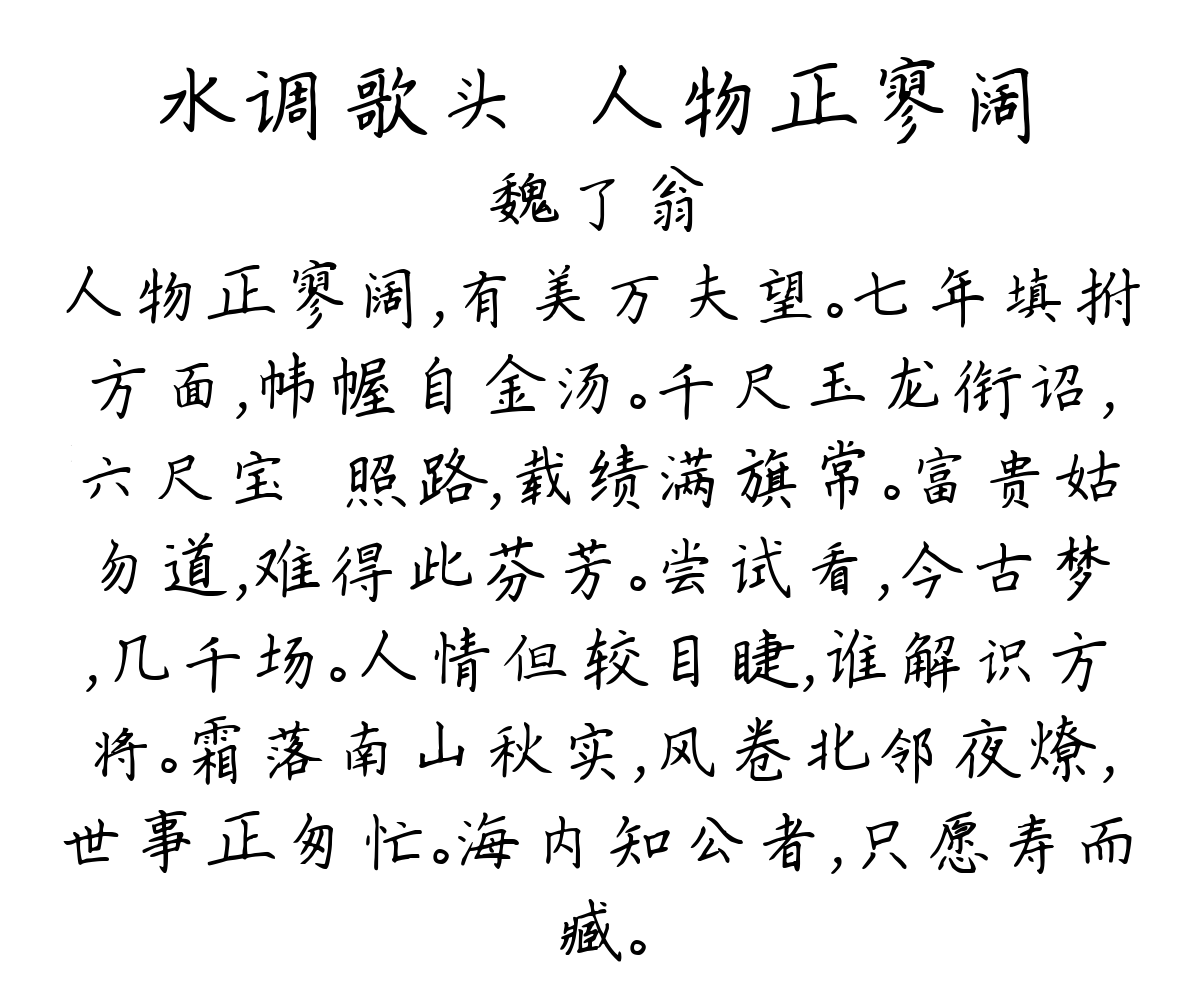 水调歌头 人物正寥阔
魏了翁
人物正寥阔,有美万夫望。七年填拊
方面,帏幄自金汤。千尺玉龙衔诏,
六尺宝 照路,载绩满旗常。富贵姑
勿道,难得此芬芳。尝试看,今古梦
,几千场。人情但较目睫,谁解识方
将。霜落南山秋实,风卷北邻夜燎,
世事正匆忙。海内知公者,只愿寿而
臧。